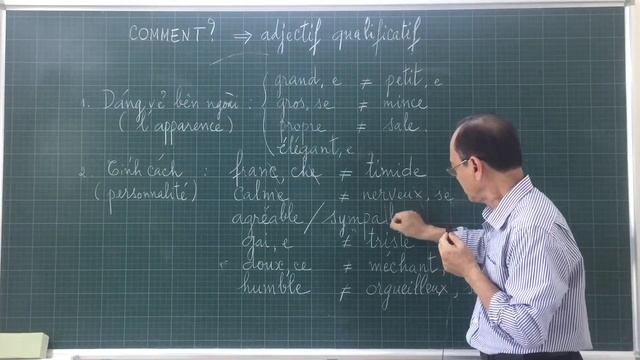 COMMENT? ⇒ adjectif qualificatif
1. Dáng vẻ bên ngoài : { grand, e ≠ petit, e
(l'apparence) gros, se ≠ mince
propre ≠ sale.
élégant, e
2. Tính cách : franc, che ≠ timide
(personnalité) calme ≠ nerveux, se
agréable / sympath
gai, e ≠ triste
doux, ce ≠ méchant,
humble ≠ orgueilleux,